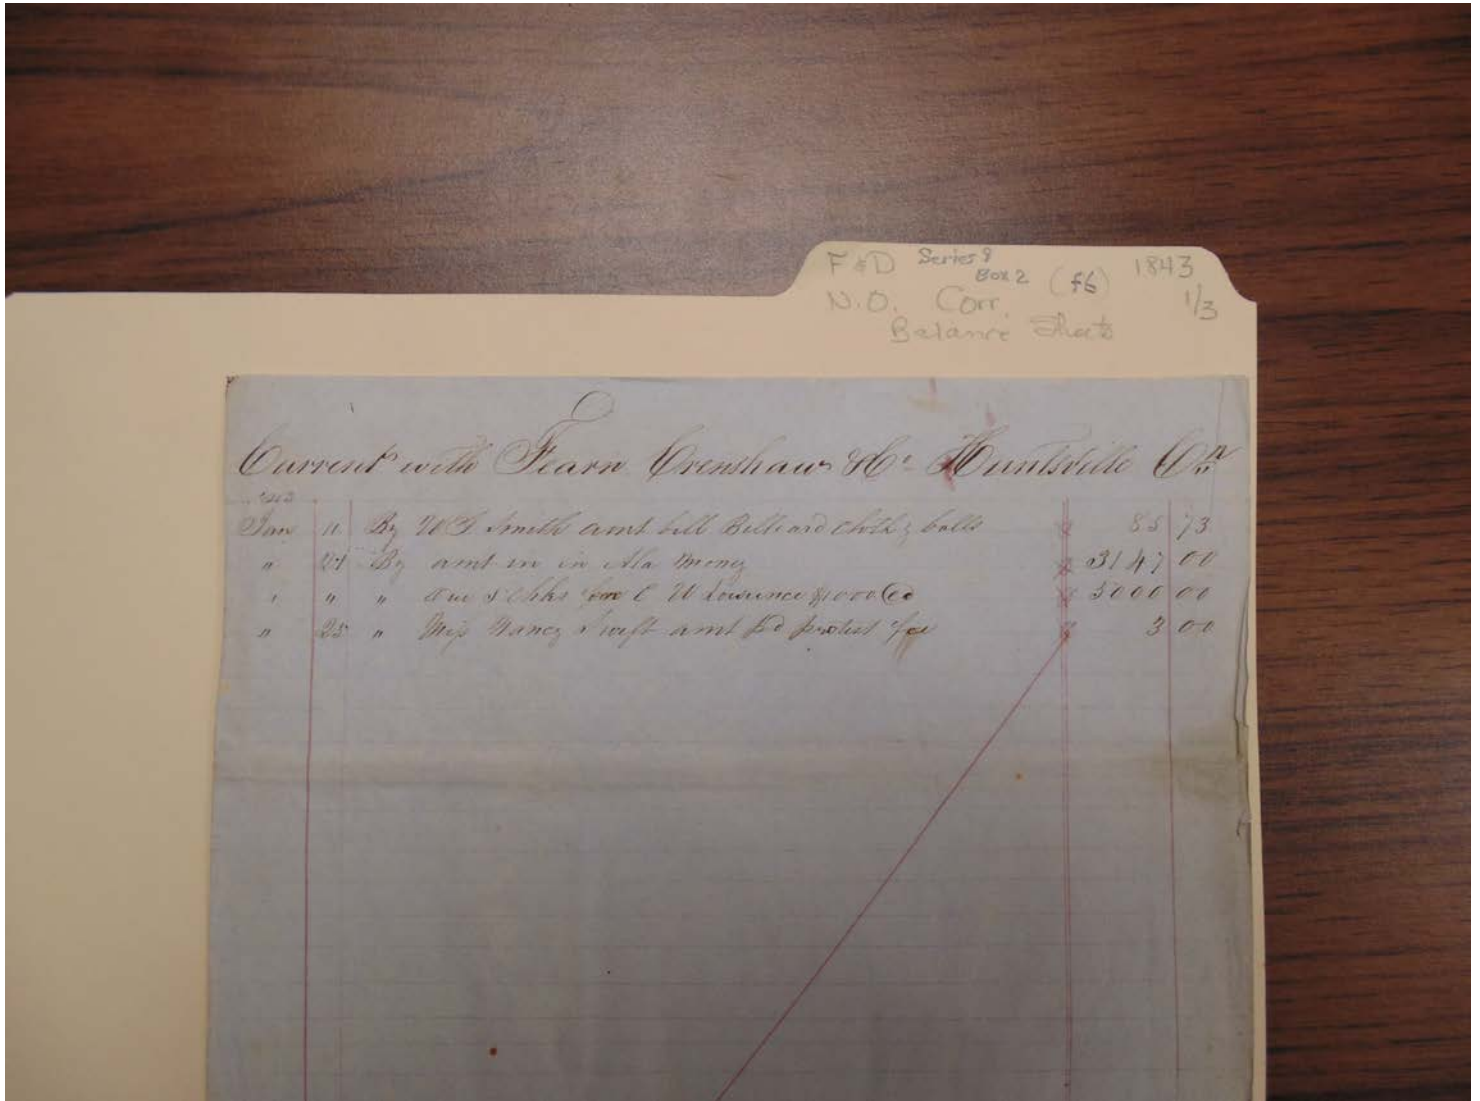 F&D Series 8 Box 2 (f6) 1843
N.O. Corr. 1/3
Balance Sheets
Current with Fearn Crenshaw & Co. Huntsville Cr
Jan 11 By W S Smith amt bill Billiard Cloth & balls 85 73
" By amt in in Ala Money 3147 00
" " " 5 Chks C W $1000 Ea 5000 00
" 25 " Miss Nancy Swift amt pd protest fee 3 00